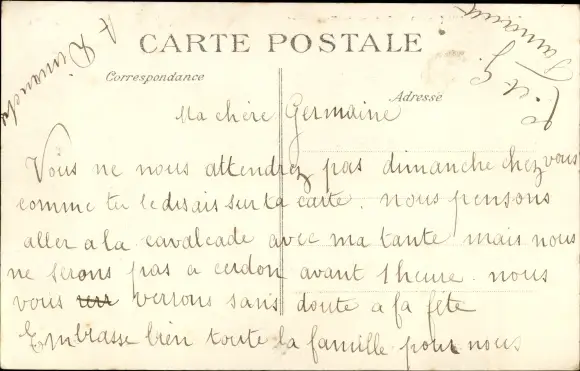 CARTE POSTALE
Correspondance
Adresse
Ma chère Germaine
Vous ne nous attendrez pas dimanche chez vous
comme tu le disais sur ta carte. nous pensons
aller a la cavalcade avec ma tante mais nous
ne serons pas a cerdon avant 1 heure. nous
vous verrons sans doute a la fête
Embrasse bien toute la famille pour nous
A Dimanche